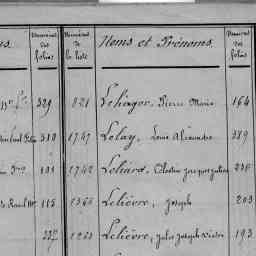 Numéros des folios Numéros de la liste Noms et Prénoms. Numéros des folios
329 821 Lehagor, Pierre Marie 164
318 1747 Lelay, Louis Alexandre 389
131 1742 Leliard, Célestin Jacques Julien
115 1366 Lelièvre, Joseph 203
1263 Lelièvre, Jules Joseph 193